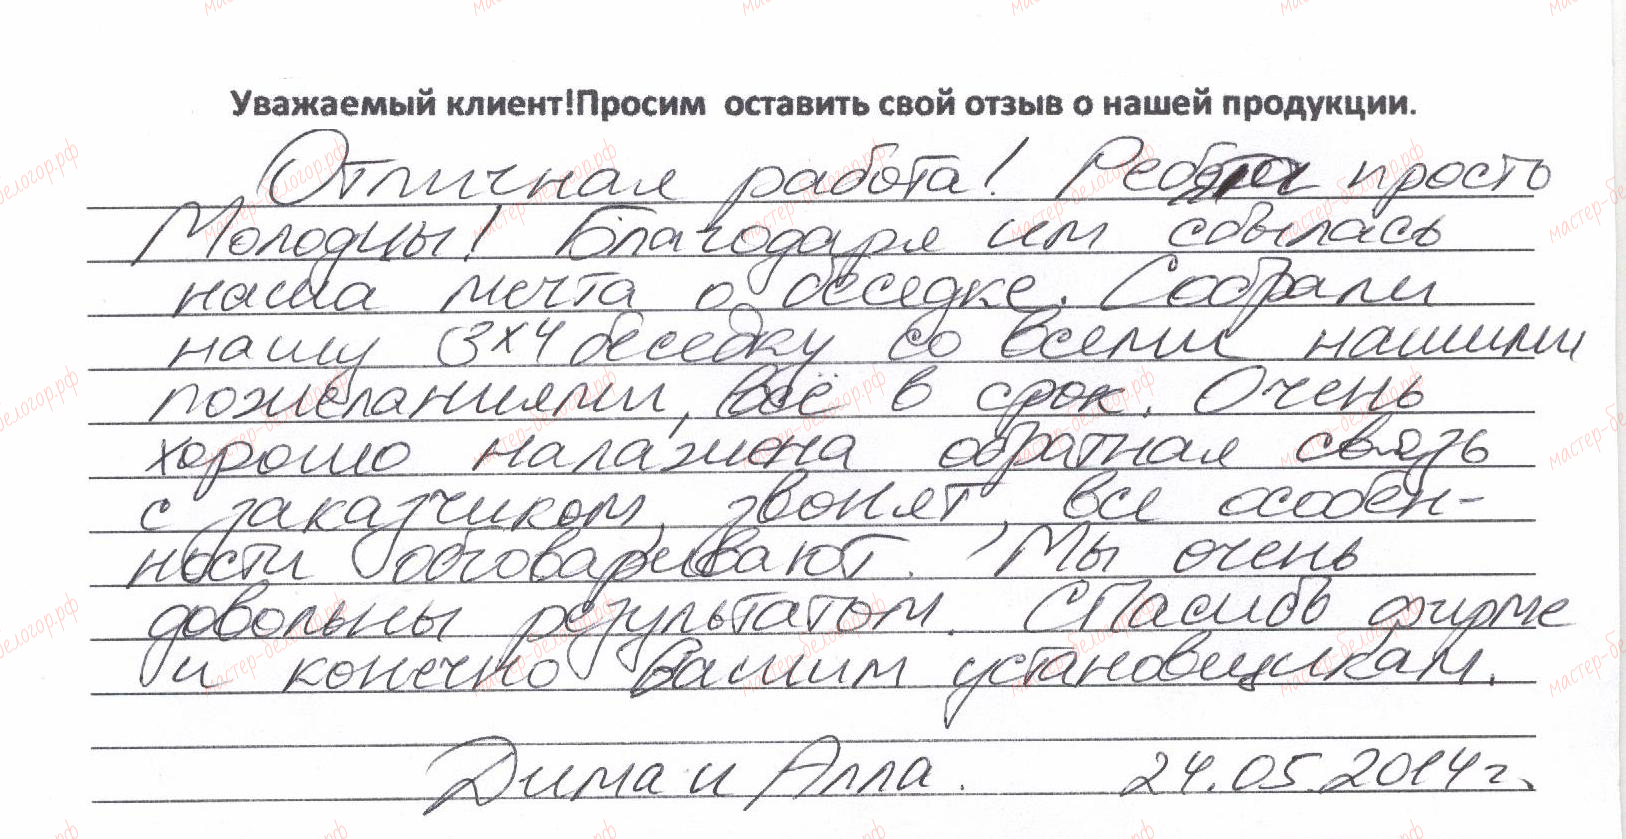 Уважаемый клиент!Просим оставить свой отзыв о нашей продукции.
Отличная работа! Ребята просто
Молодцы! Благодаря им сбылась
наша мечта о беседке. Собрали
нашу 3х4 беседку со всеми нашими
пожеланиями, всё в срок. Очень
хорошо налажена обратная связь
с заказчиком, звонят, все особен-
ности обговаривают. Мы очень
довольны результатом. Спасибо фирме
и конечно Вашим установщикам.
Дима и Алла. 24.05.2014г.
мастер-белогор.рф